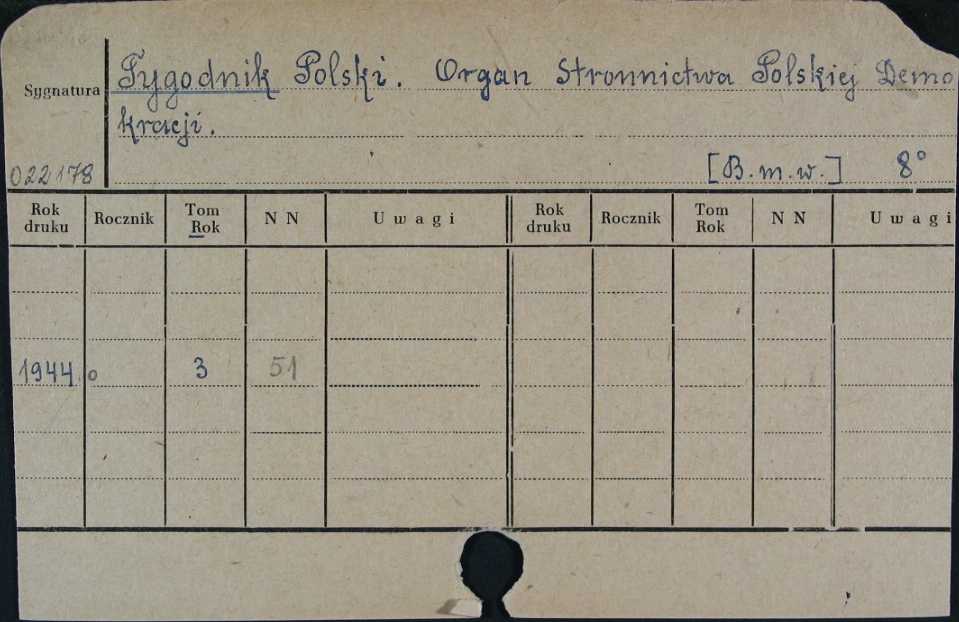 Tygodnik Polski. Organ Stronnictwa Polskiej Demo
Sygnatura
kracji.
022178
[B.m.w.] 8°
Rok druku Rocznik Tom Rok N N Uwagi Rok druku Rocznik Tom Rok N N Uwagi
1944. o 3 51